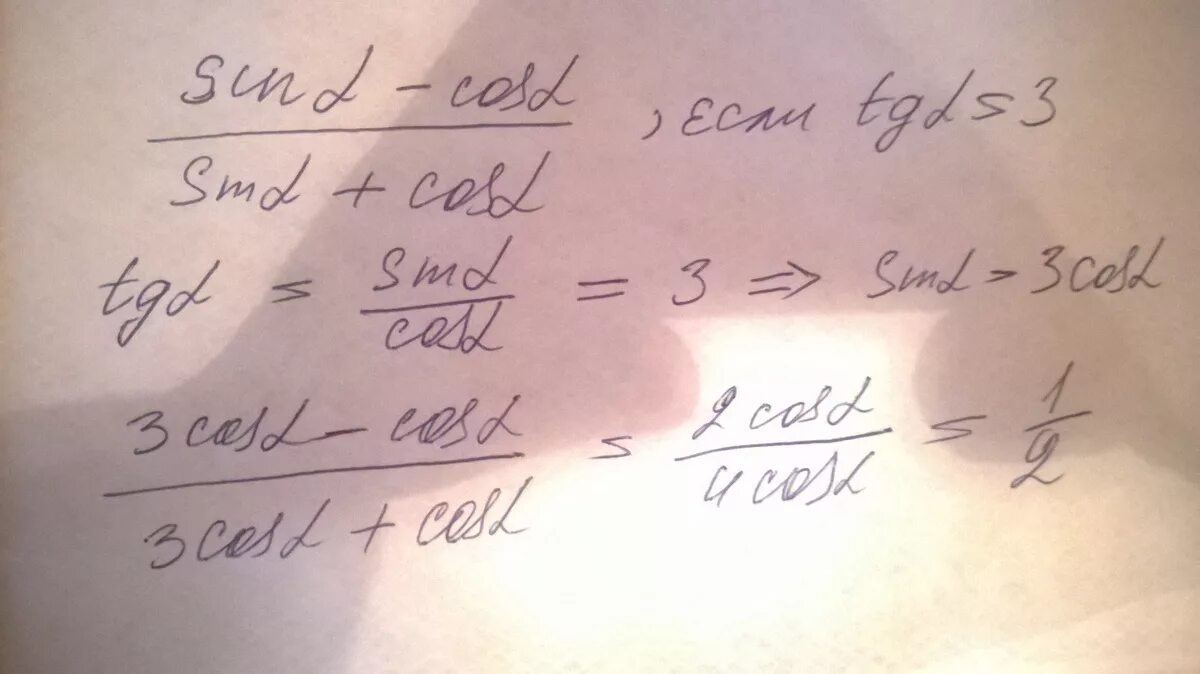 sinα - cosα / sinα + cosα , если tgα = 3
tgα = sinα / cosα = 3 ⇒ sinα = 3cosα
3cosα - cosα / 3cosα + cosα = 2cosα / 4cosα = 1 / 2